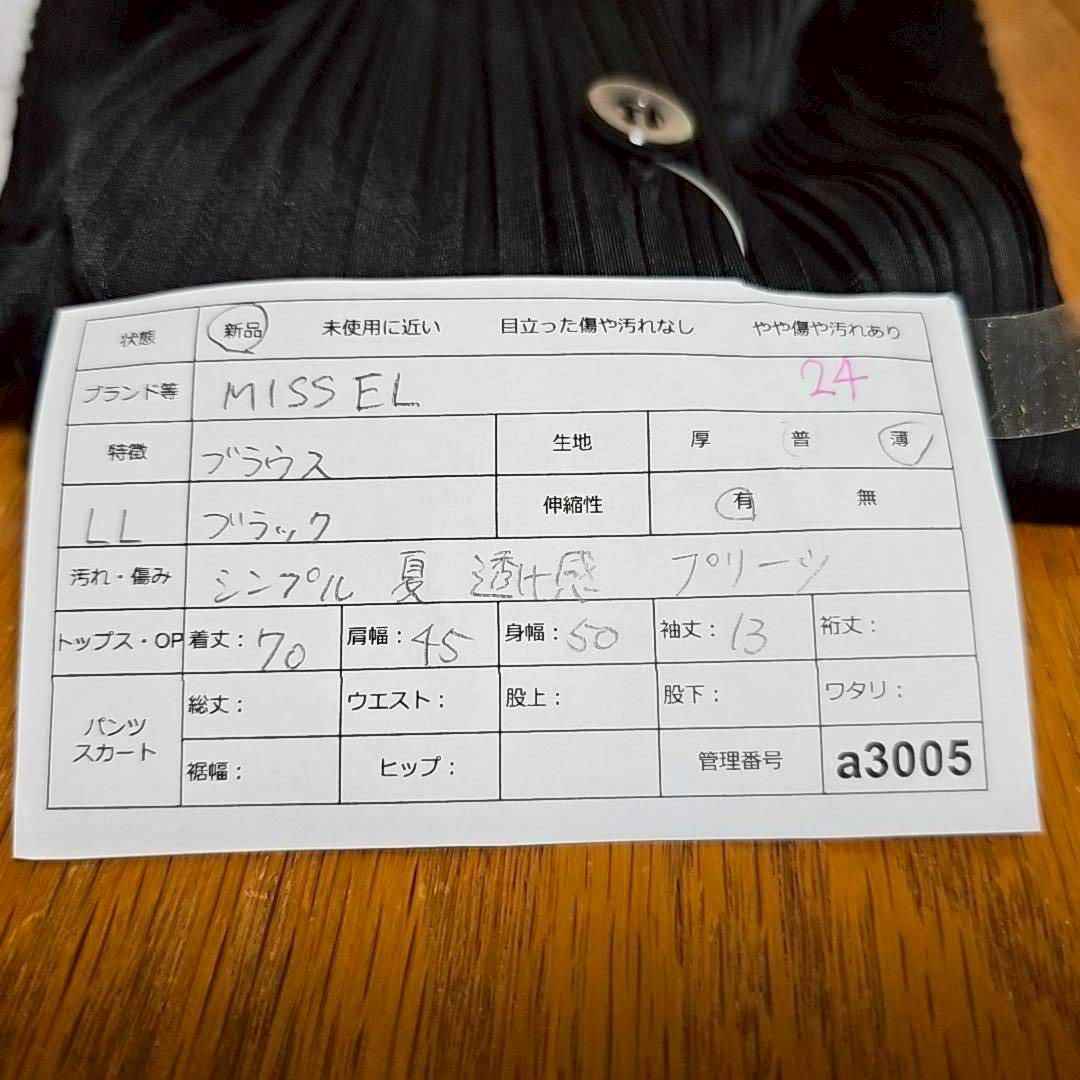 状態 新品 未使用に近い 目立った傷や汚れなし やや傷や汚れあり
ブランド等 MISS EL 24
特徴 ブラウス 生地 厚 普 薄
LL ブラック 伸縮性 有 無
汚れ・傷み シンプル 夏 透け感 プリーツ
トップス・OP 着丈：70 肩幅：45 身幅：50 袖丈：13 裄丈：
パンツ スカート 総丈： ウエスト： 股上： 股下： ワタリ：
裾幅： ヒップ： 管理番号 a3005